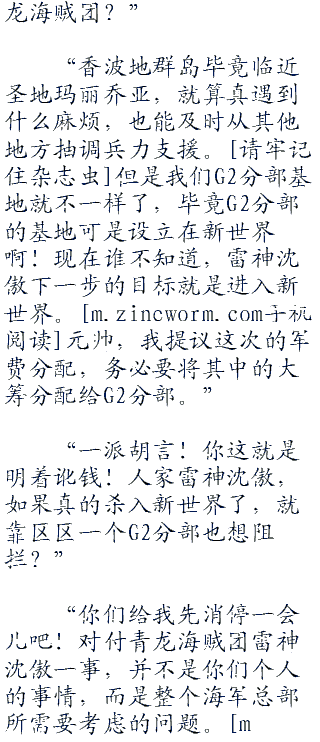 龙海贼团？”
“香波地群岛毕竟临近
圣地玛丽乔亚，就算真遇到
什么麻烦，也能及时从其他
地方抽调兵力支援。[请牢记
住杂志虫]但是我们G2分部基
地就不一样了，毕竟G2分部
的基地可是设立在新世界
啊！现在谁不知道，雷神沈
傲下一步的目标就是进入新
世界。[m.zincworm.com手机
阅读]元帅，我提议这次的军
费分配，务必要将其中的大
筹分配给G2分部。”
“一派胡言！你这就是
明着讹钱！人家雷神沈傲，
如果真的杀入新世界了，就
靠区区一个G2分部也想阻
拦？”
“你们给我先消停一会
儿吧！对付青龙海贼团雷神
沈傲一事，并不是你们个人
的事情，而是整个海军总部
所需要考虑的问题。[m